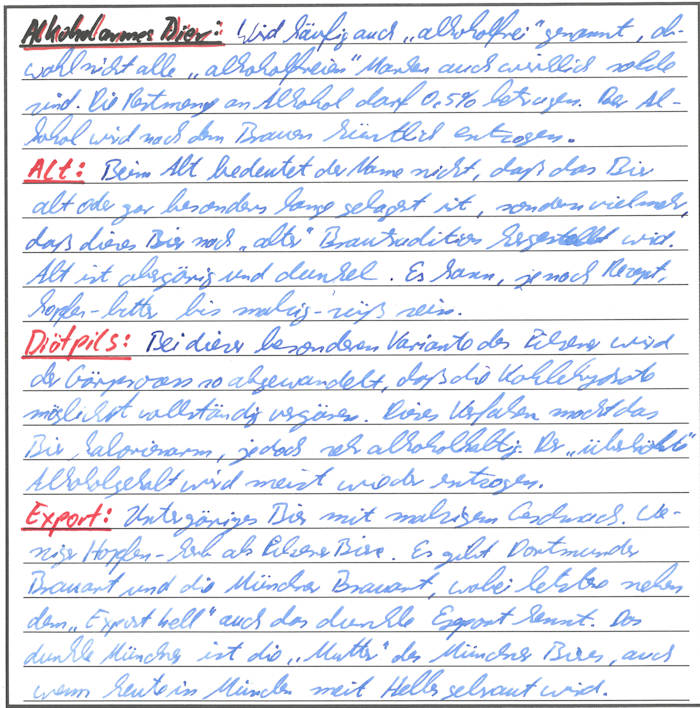 Alkoholarmes Bier: Wird häufig auch „alkoholfrei" genannt, ob-
wohl nicht alle „alkoholfreien" Marken auch wirklich solche
sind. Die Restmenge an Alkohol darf 0,5% betragen. Der Al-
kohol wird nach dem Brauen künstlich entzogen.
Alt: Beim Alt bedeutet der Name nicht, daß das Bier
alt oder gar besonders lang gelagert ist, sondern vielmehr,
daß dieses Bier nach „alter" Brautradition hergestellt wird.
Alt ist obergärig und dunkel. Es kann, je nach Rezept,
hopfen-bitter bis malzig-süß sein.
Diätpils: Bei dieser besonderen Variante des Pilsener wird
der Gärprozess so abgewandelt, daß die Kohlehydrate
möglichst vollständig vergären. Dieses Verfahren macht das
Bier kalorienarm, jedoch sehr alkoholhaltig. Der „überhöhte"
Alkoholgehalt wird meist wieder entzogen.
Export: Untergäriges Bier mit malzigem Geschmack. We-
niger Hopfen-herb als Pilsener Biere. Es gibt Dortmunder
Brauart und die Münchner Brauart, wobei letztere neben
dem „Export hell" auch das dunkle Export kennt. Das
dunkle Münchner ist die „Mutter" des Münchner Bieres, auch
wenn heute in München meist Helles gebraut wird.